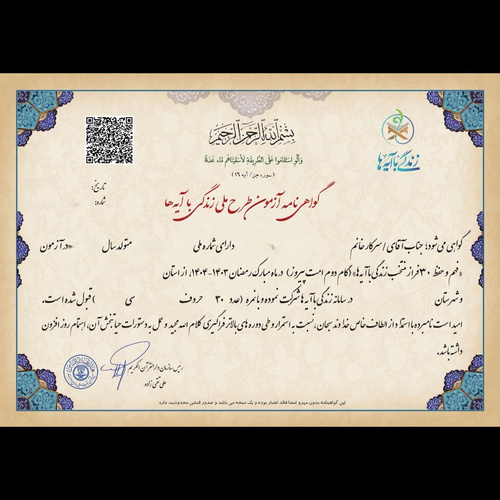 بِسْمِ اللَّهِ الرَّحْمَنِ الرَّحِيمِ
وَأَلَّوِ اسْتَقَامُوا عَلَى الطَّرِيقَةِ لَأَسْقَيْنَاهُم مَّاءً غَدَقًا
(سوره جن / آیه ۱۶)
زندگی با آیه‌ها
تاریخ:
شماره:
گواهی نامه آزمون طرح ملی زندگی با آیه ها
گواهی می شود: جناب آقای / سرکار خانم دارای شماره ملی متولد سال در آزمون
«فهم و حفظ ۳۰ فراز منتخب زندگی با آیه ها» (گام دوم امت پیروز) در ماه مبارک رمضان ۱۴۰۳-۱۴۰۴، از استان
و شهرستان در سامانه زندگی با آیه ها شرکت نموده و با نمره (عدد ۳۰ حروف سی) قبول شده است.
امید است نامبرده با استمداد از الطاف خاص خداوند سبحان، نسبت به استمرار و طی دوره های بالاتر فراگیری کلام الله مجید و عمل به دستورات حیاتبخش آن، اهتمام روز افزون
داشته باشد.
رئیس سازمان دارالقرآن الکریم
علی تقی زاده
این گواهینامه بدون مهر و امضا فاقد اعتبار بوده و یک نسخه می باشد و صدور المثنی محدودیت دارد